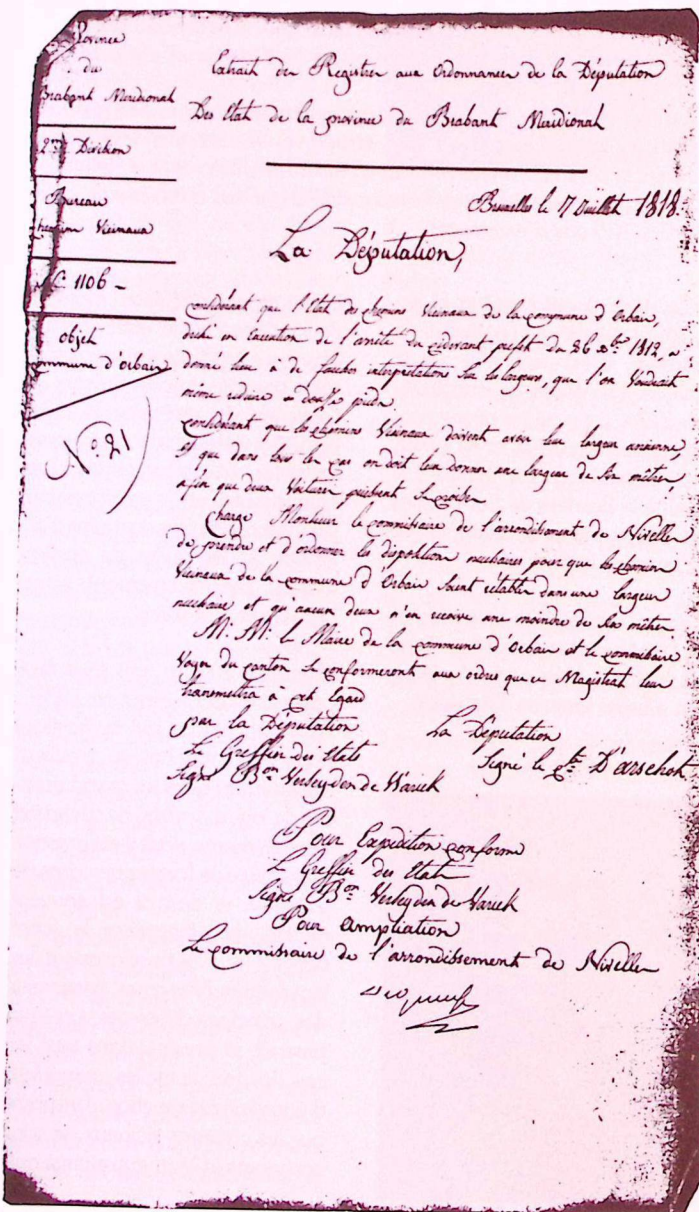 Province
du
Brabant Meridional
2me Division
Bureau
chemins Vicinaux
N.C. 1106 -
objet
Commune d'Orbais
No. 21
Extrait des Registres aux Ordonnances de la Députation
Des Etats de la province du Brabant Meridional
Bruxelles le 7 Juillet 1818.
La Députation,
considérant que l'Etat des chemins Vicinaux de la commune d'Orbais,
dressé en Execution de l'arrêté du cidevant prefet du 26 8bre 1812, a
donné lieu à de fausses interpretations sur les largeurs, que l'on Voudrait
même réduire a douze pieds
considérant que les chemins Vicinaux doivent avoir leur largeur ancienne,
et que dans tous les cas on doit leur donner une largeur de six mètres,
afin que deux Voitures puissent se croiser
Charge Monsieur le commissaire de l'arrondissement de Nivelles
de prendre et d'ordonner les dispositions necessaires pour que les chemins
Vicinaux de la commune d'Orbais Soient rétablis dans une largeur
necessaire et qu'aucun deux n'en recoive une moindre de six mètres
M: M: le Maire de la commune d'Orbais et le commissaire
Voyer du canton se conformeront aux ordres que ce Magistrat leur
transmettra à cet Egard
par la Députation
La Députation
Le Greffier des Etats
Signé le Cte D'arschot
Signé Bon Verheyden de Varick
Pour Expédition conforme
Le Greffier des Etats
Signé Bon Verheyden de Varick
Pour ampliation
Le commissaire de l'arrondissement de Nivelles